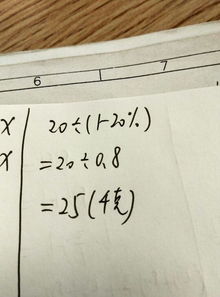 6 7
x 20÷(1-20%)
x =20÷0.8
=25(千克)